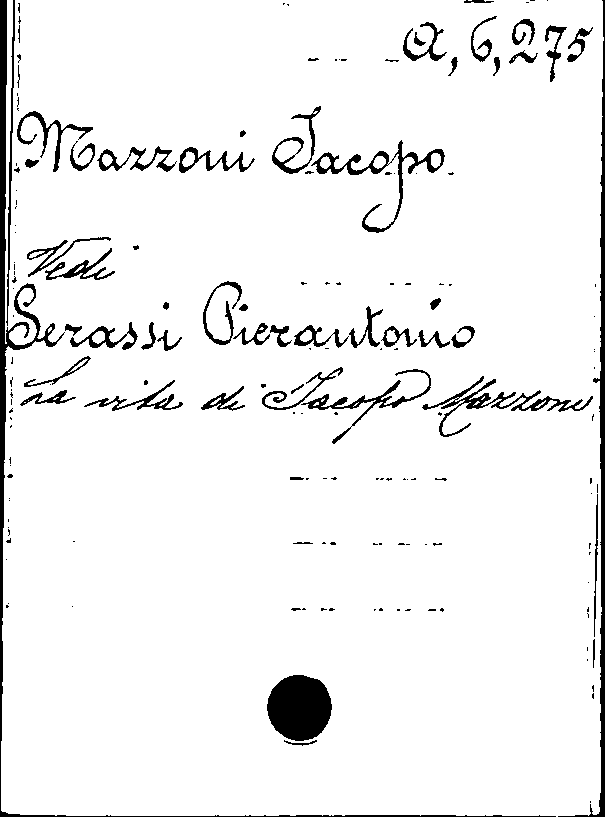 A, 6, 275
Mazzoni Jacopo
Vedi
Serassi Pierantonio
La vita di Jacopo Mazzoni